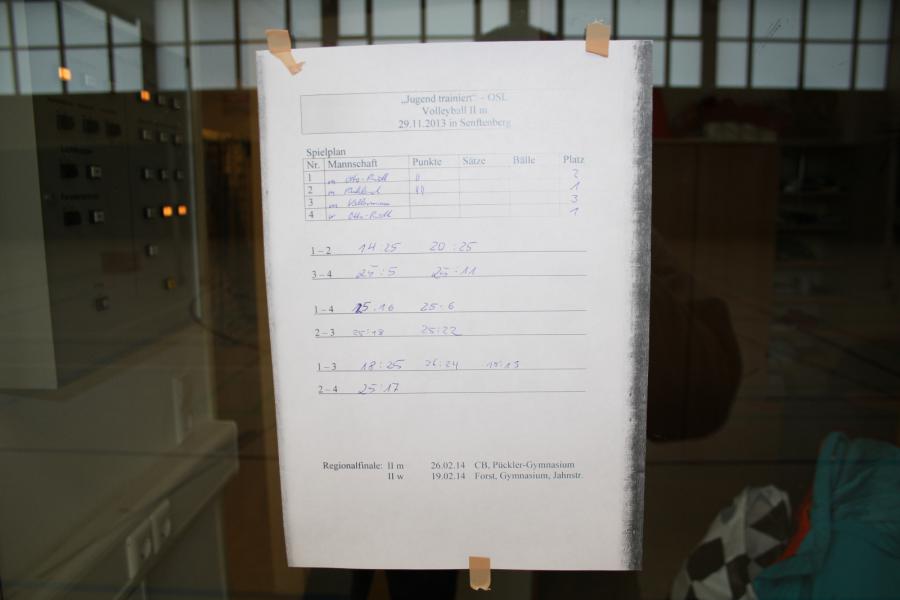 „Jugend trainiert“ - OSL
Volleyball II m
29.11.2013 in Senftenberg
Spielplan
Nr. Mannschaft Punkte Sätze Bälle Platz
1 m Otto-Rüdt II 2
2 m 1
3 m 3
4 w Otto-Rüdt 1
1 – 2 14 25 20 : 25
3 – 4 25 : 5 25 : 11
1 – 4 25 . 16 25 . 6
2 – 3 25 : 18 25 : 22
1 – 3 18 : 25 26 : 24 15 : 13
2 – 4 25 : 17
Regionalfinale: II m 26.02.14 CB, Pückler-Gymnasium
II w 19.02.14 Forst, Gymnasium, Jahnstr.